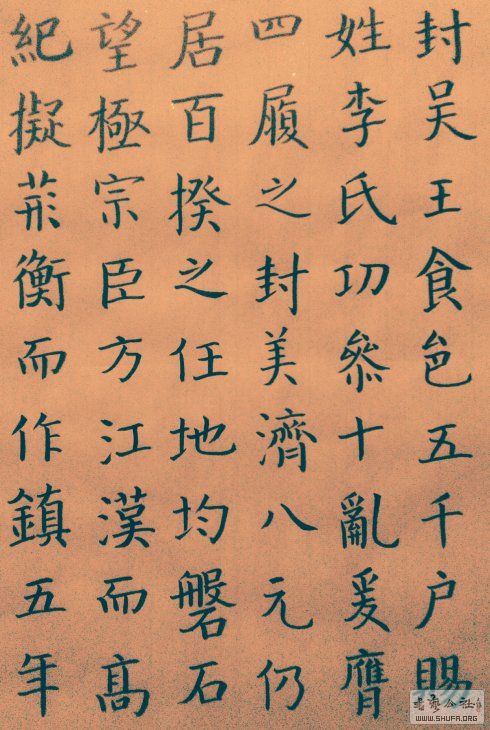 封吴王食邑五千户賜
姓李氏功叅十亂爰膺
四履之封美濟八元仍
居百揆之任地均磐石
望極宗臣方江漢而高
紀擬荊衡而作鎮五年
WWW.SHUFA.ORG